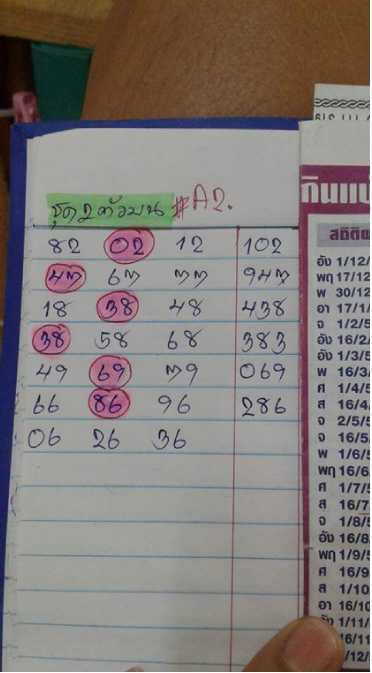 ชุด 2 ตัวบน #A2.
82 02 12 102
47 67 77 947
18 38 48 438
38 58 68 383
49 69 79 069
66 86 96 286
06 26 36
กินแบ่
สถิติ
อัง 1/12/
พฤ 17/12
พ 30/12
อา 17/1/
จ 1/2/5
อัง 16/2/
อัง 1/3/5
พ 16/3/
ศ 1/4/5
ส 16/4/
จ 2/5/5
จ 16/5/
พ 1/6/5
พฤ 16/6/
ศ 1/7/5
ส 16/7
จ 1/8/5
อัง 16/8/
พฤ 1/9/5
ศ 16/9/
ส 1/10/
อา 16/10
1/11/
16/11
/12/